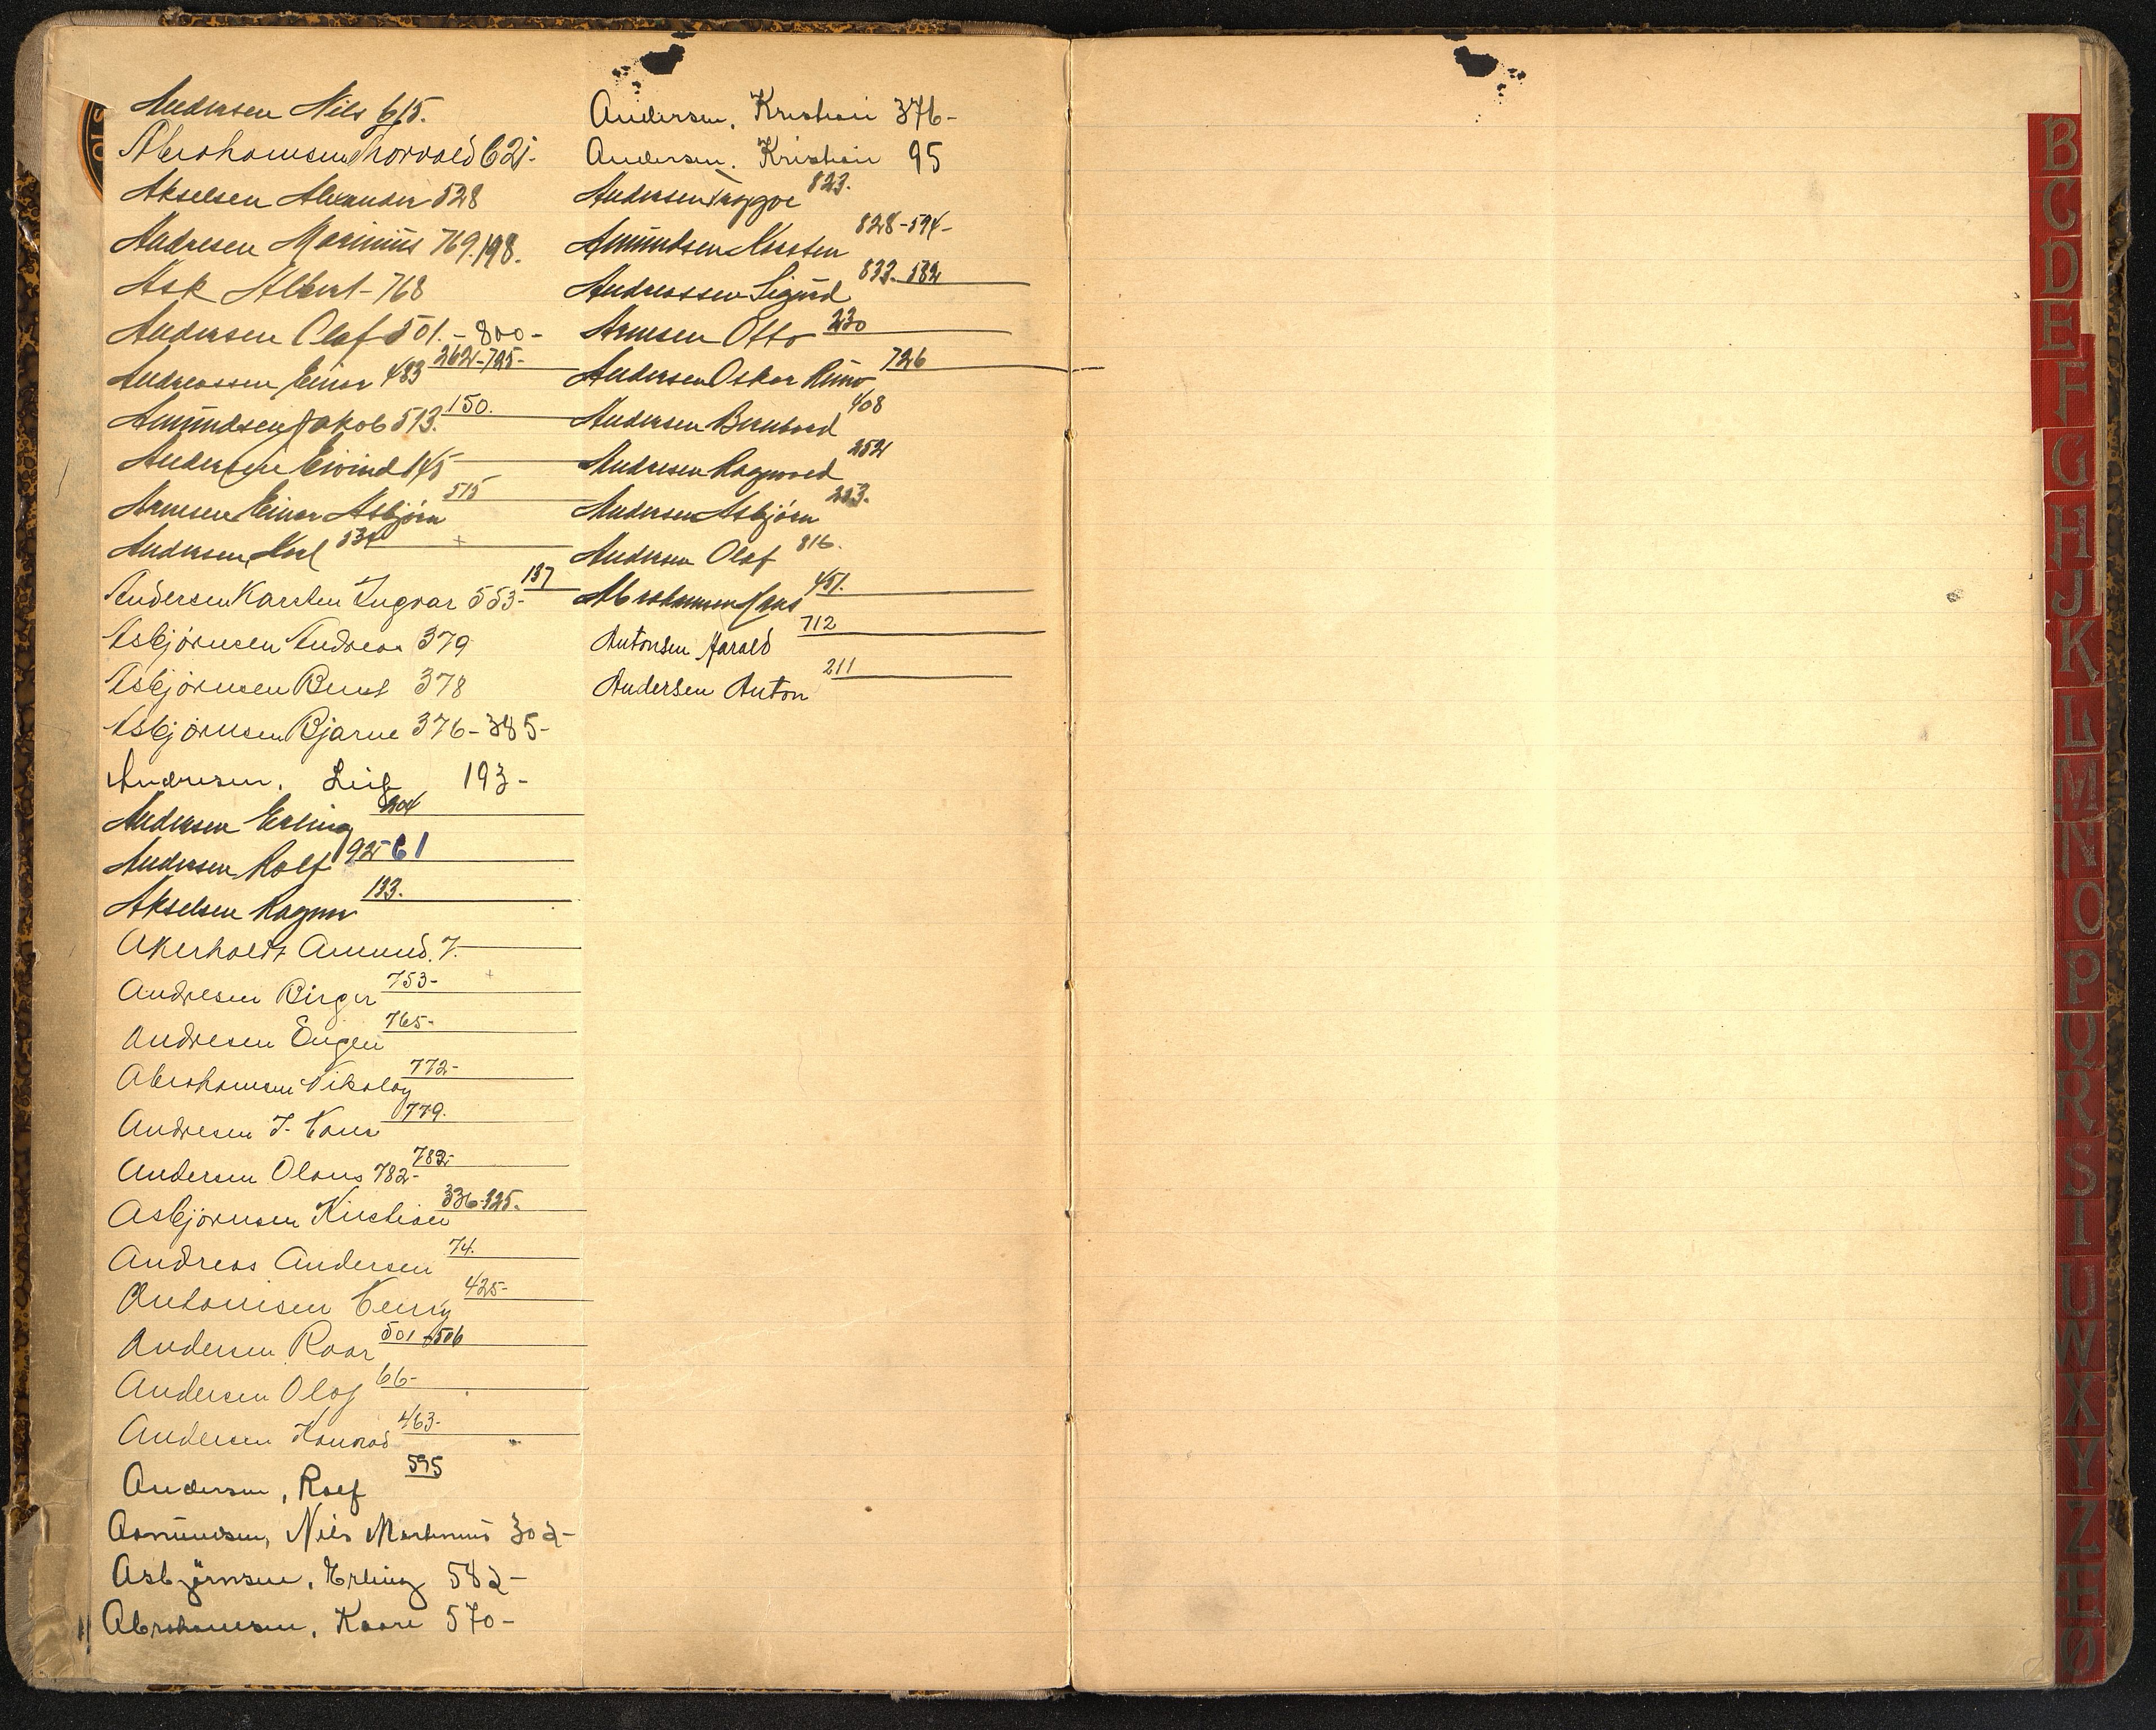 Andersen Nils 615.
Abrahamsen Thorvald 621.
Akselsen Alexander 528
Andresen Marinius 769. 198.
Ask Albert - 768
Andersen Olaf 501. - 800 -
Andreassen Einar 483 262 - 725 -
Amundsen Jakob 513. 150.
Andersen Eivind 145
Arnesen Einar Asbjørn 515
Andersen, Karl 534
Andersen Karsten Ingvar 553 - 137
Asbjørnsen Andreas 379
Asbjørnsen Bernt 378
Asbjørnsen Bjarne 376 - 385 -
Andresen, Leif 193 -
Andersen Erling 204
Andersen Rolf 192 - 61
Akselsen Ragnar 133.
Akerholdt Amund. 7.
Andresen Birger 753 -
Andresen Eugen 765 -
Abrahamsen Nikolay 772 -
Andresen J. Hans 779.
Andersen Olaus 782 - 782 -
Asbjørnsen Kristian 336 - 325.
Andreas Andersen 74.
Antonisen Henry 425 -
Andersen Roar 501 - 506
Andersen Olaf 66 -
Andersen Konrad 463 -
Andersen, Rolf 595
Aamundsen, Nils Martinius 302 -
Asbjørnsen, Erling 582 -
Abrahamsen, Kaare 570 -
Andersen, Kristian 376 -
Andersen, Kristian 95
Andersen Tryggve 823.
Amundsen Karsten 828 - 594 -
Andreassen Sigurd 833. 582
Arnesen Otto 230
Andersen Oskar Rino 726
Andersen Bernhard 408
Andresen Ragnvald 252
Andersen Asbjørn 223.
Andersen Olaf 816.
Abrahamsen Hans 451.
Antonsen Harald 712
Andersen Anton 211
B
C
D
E
F
G
H
J
K
L
M
N
O
P
Q
R
S
T
U
W
X
Y
Z
Æ
Ø